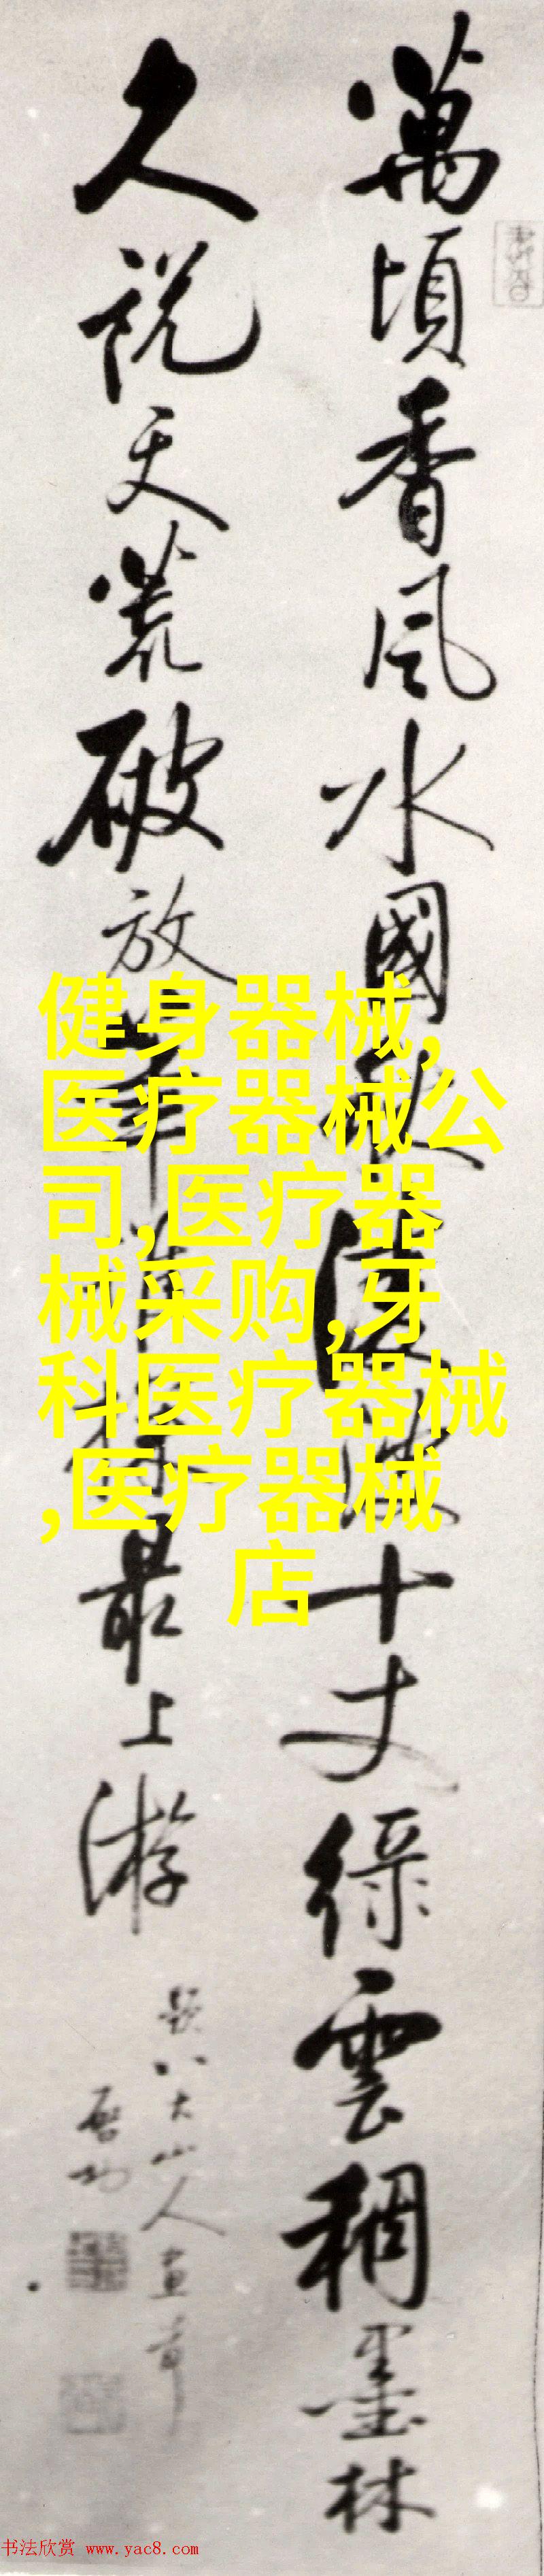 萬頃香風水國秋淩波十丈綠雲稠墨林
久說天荒破放筆花
最上游
題八大山人畫卷
啟功
健身器械,
医疗器械公
司,医疗器
械采购,牙
科医疗器械
,医疗器械
店
书法欣赏 www.yac8.com